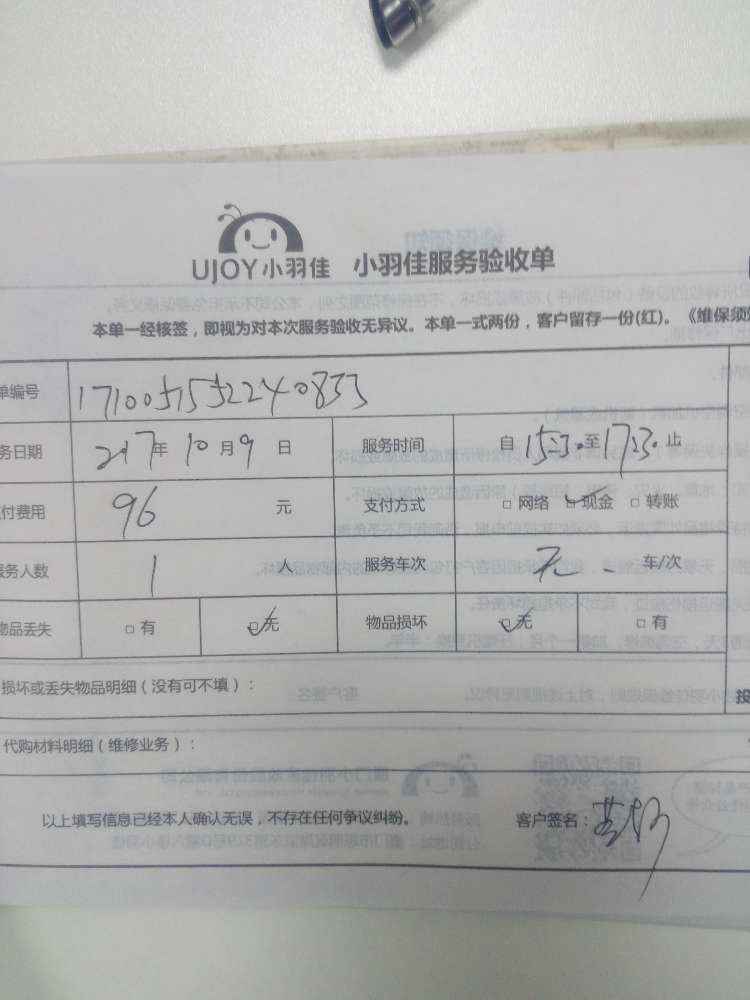 UJOY小羽佳 小羽佳服务验收单
本单一经核签，即视为对本次服务验收无异议。本单一式两份，客户留存一份(红)。《维保须知
单编号 1710051552240833
务日期 2017年10月9日 服务时间 自15:30至17:30止
付费用 96 元 支付方式 □ 网络 ☑现金 □ 转账
服务人数 1 人 服务车次 无 车/次
物品丢失 □ 有 ☑无 物品损坏 ☑无 □ 有
损坏或丢失物品明细（没有可不填）：
代购材料明细（维修业务）：
以上填写信息已经本人确认无误，不存在任何争议纠纷。 客户签名：